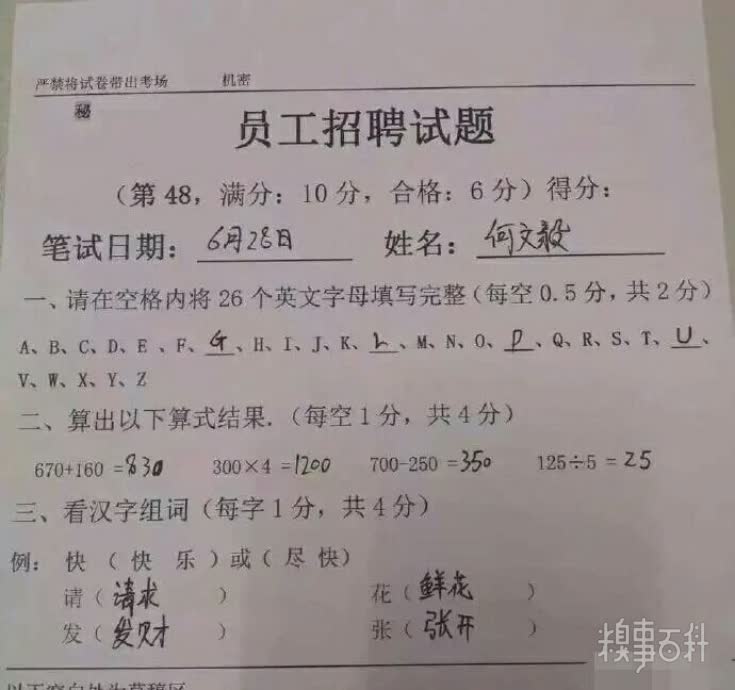 严禁将试卷带出考场 机密
秘
员工招聘试题
（第 48，满分：10 分，合格：6 分）得分：
笔试日期：6月28日 姓名：何文毅
一、请在空格内将 26 个英文字母填写完整（每空 0.5 分，共 2 分）
A、B、C、D、E 、F、G、H、I、J、K、L、M、N、O、P、Q、R、S、T、U、
V、W、X、Y、Z
二、算出以下算式结果.（每空 1 分，共 4 分）
670+160 =830 300×4 =1200 700-250 =350 125÷5 =25
三、看汉字组词（每字 1 分，共 4 分）
例： 快 （ 快 乐 ）或（ 尽 快）
请（请求 ） 花（鲜花 ）
发（发财 ） 张（张开 ）
糗事百科
以下空白处为草稿区